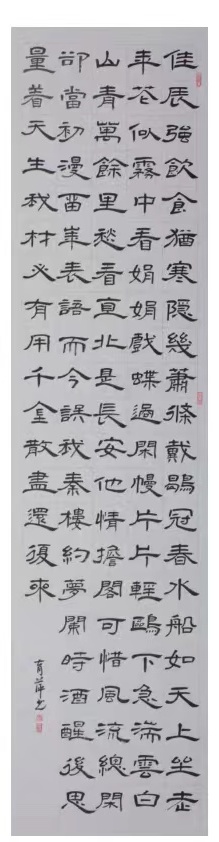 佳辰強飲食猶寒隱幾蕭條戴鶡冠春水船如天上坐老
年花似霧中看娟娟戲蝶過閑幔片片輕鷗下急湍雲白
山青萬餘里愁看直北是長安他情擔閣可惜風流總閑
卻當初漫留華表語而今誤我秦樓約夢闌時酒醒後思
量着天生我材必有用千金散盡還復來